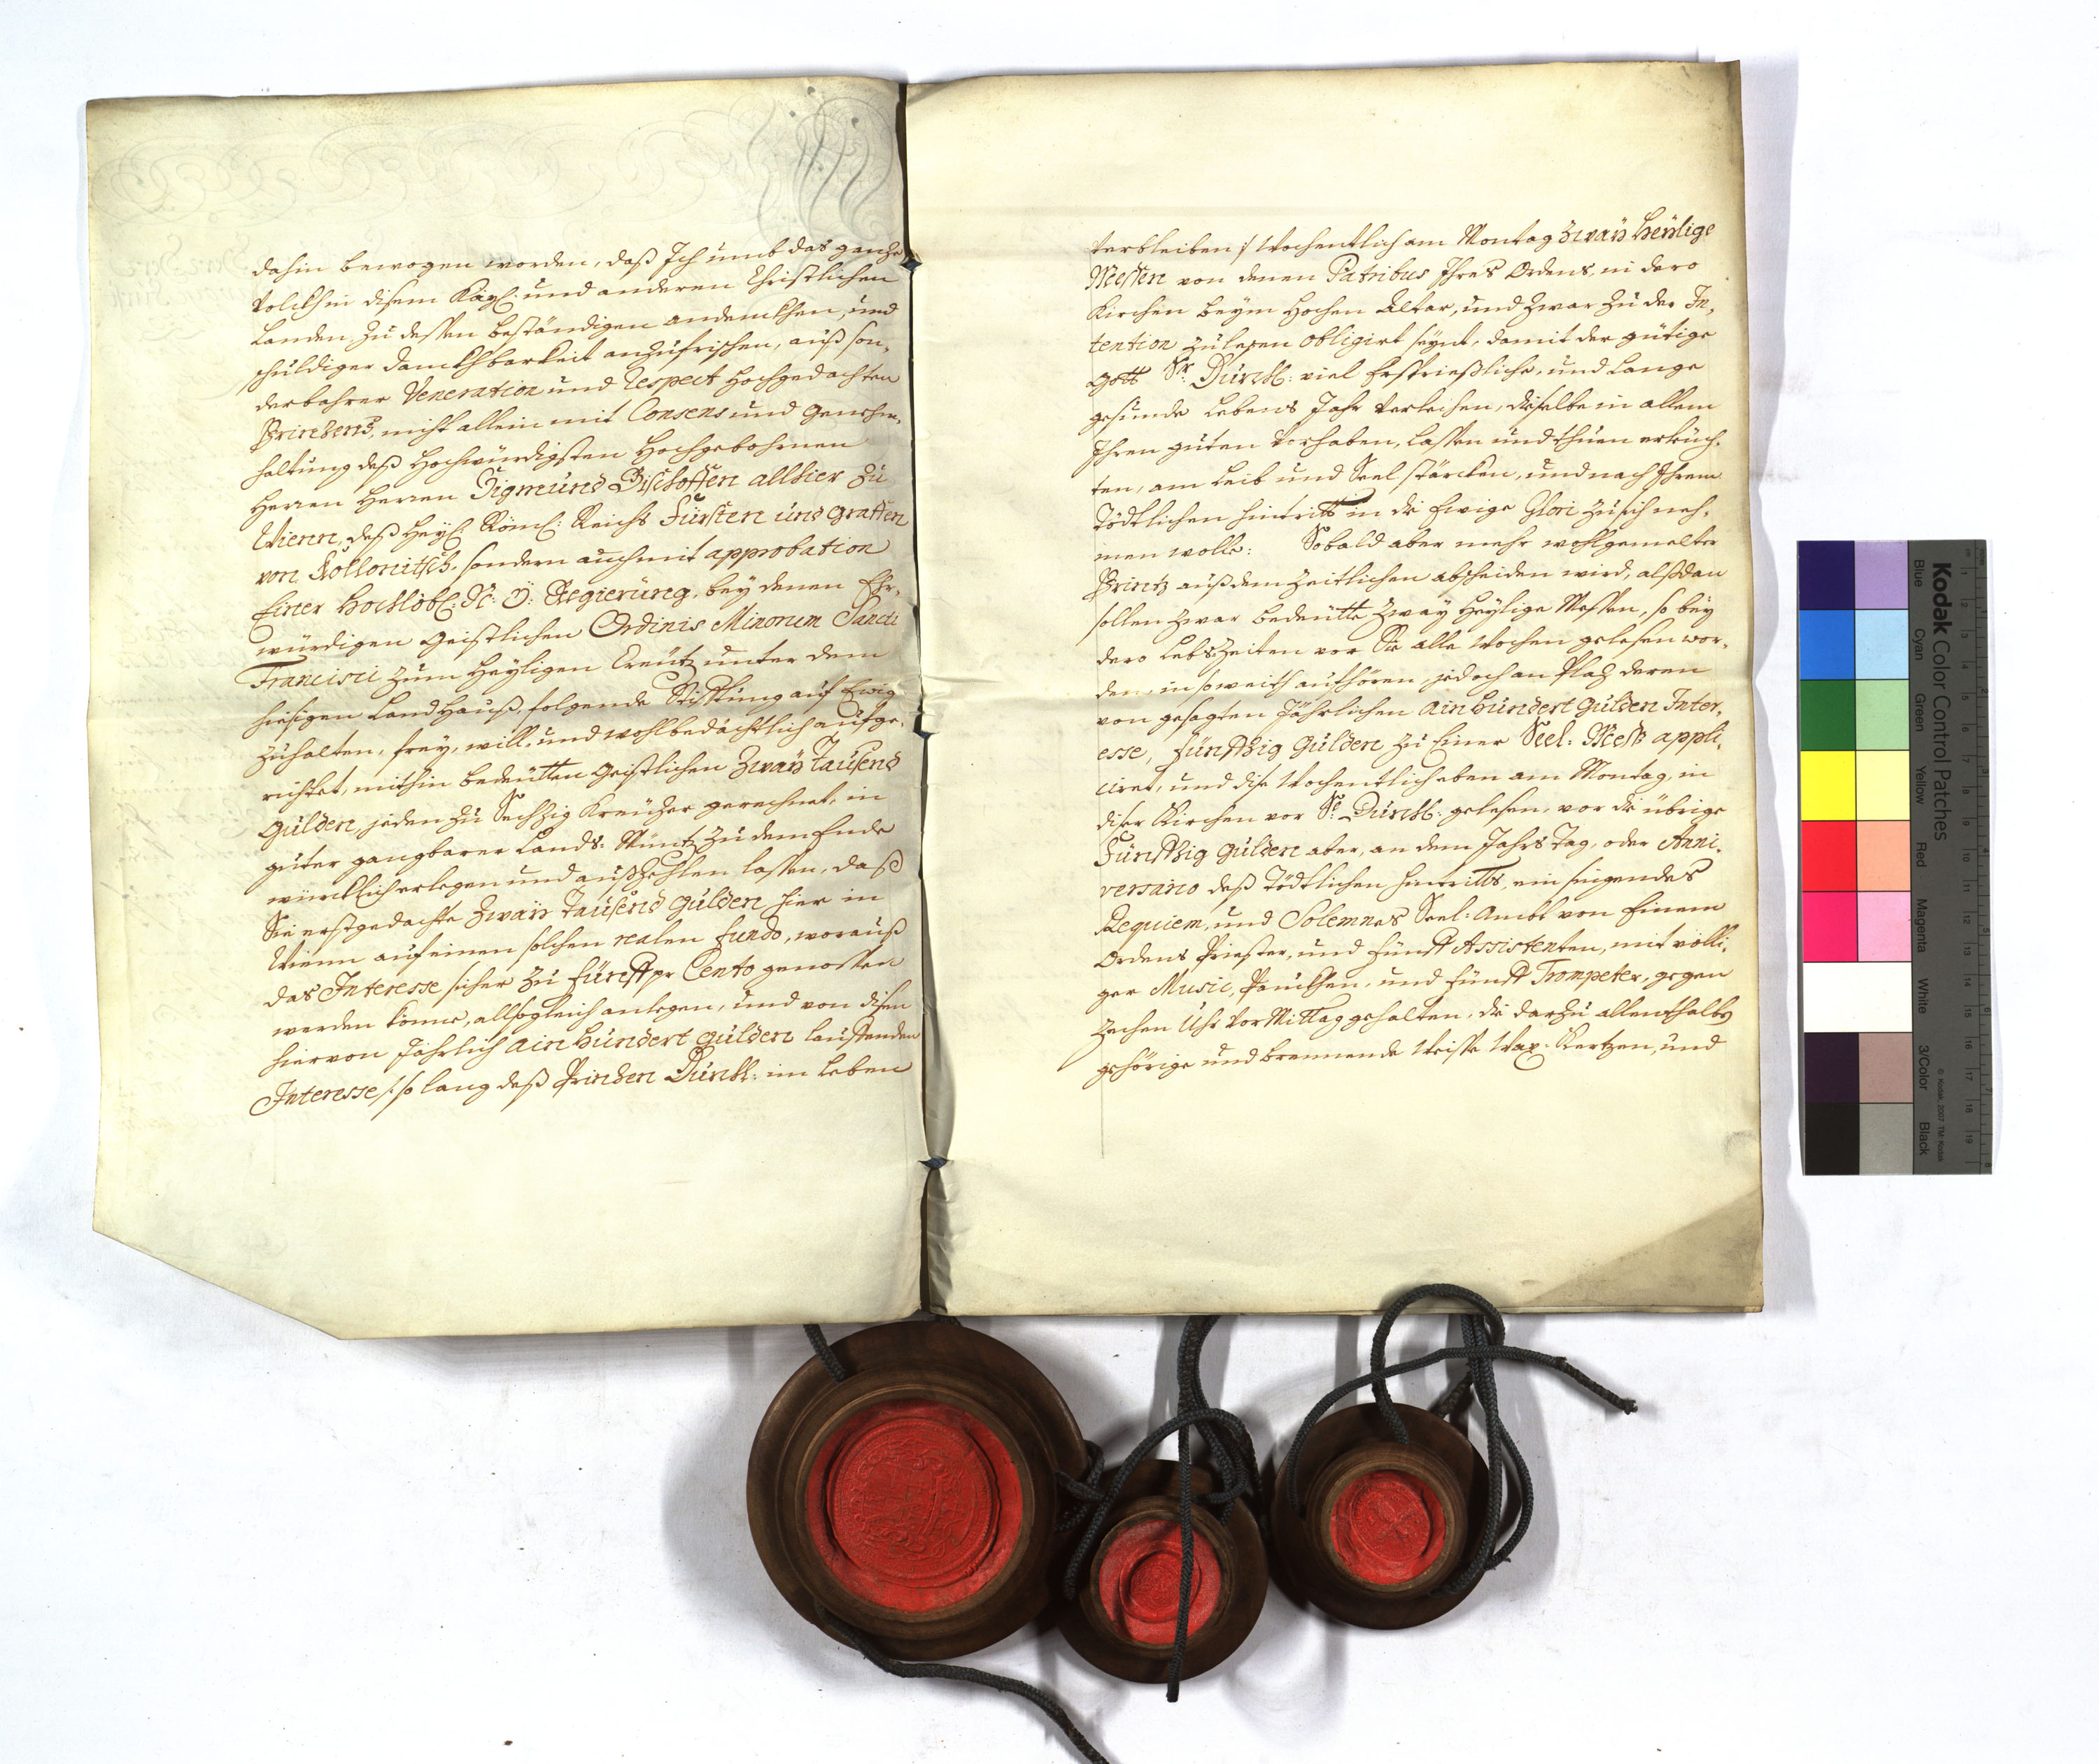 dahin bewogen worden, daß Ich umb das gantze
Volckh in disem Kayl: und anderen Christlichen
Landen zu dessen beständigen andenckhen, und
schuldiger danckhbarkeit anzufrischen, auß son,
derbahrer Veneration und Respect Hochgedachten
Printzens, nicht allein mit Consens und Genehm,
haltung deß Hochwürdigsten Hochgebohrnen
Herren Herren Sigmund Bischoffen allhier zu
Wienn, deß Heyl: Röml: Reichs Fürsten und Graffen
von Kollonitsch, sondern auch mit approbation
Einer Hochlöbl: N: Ö: Regierung, bey denen Ehr,
würdigen Geistlichen Ordinis Minorum Sancti
Francisci zum Heyligen Creütz unter dem
hiesigen Landhauß, folgende Stifftung auf Ewig
zuhalten, frey, will, und wohlbedächtlich aufge,
richtet, mithin bedeütten Geistlichen Zway Tausend
Gulden, jeden zu Sechzig Kreuzer gerechnet, in
guter gangbarer Lands: Müntz zu dem Ende
würcklich erlegen und außzehlen lassen, daß
Sie erstgedachte Zway Tausend Gulden hier in
Wienn auf einen solchen realen fundo, worauß
das Interesse sicher zu fünff pr Cento genossen
werden könne, allsogleich anlegen, und von disen
hiervon Jährlich ain hundert Gulden lauffenden
Interesse /: so lang deß Printzen Durchl: im Leben
verbleiben :/ Wochentlich am Montag Zway Heylige
Messen von denen Patribus Ihres Ordens in dero
Kirchen beym Hochen Altar, und zwar zu der In,
tention zulesen obligirt seynd, damit der gütige
Gott Sr. Durchl: viel Ersprießliche, und Lange
gesunde Lebens Jahr verleihen, dieselbe in allem
Ihren guten Vorhaben, Lassen und thuen erleüch,
ten, am Leib und Seel stärcken, und nach Ihrem
Tödtlichen Hintritt in die Ewige Glori zu sich neh,
men wolle: Sobald aber mehr wohlgemelter
Printz auß dem Zeitlichen abscheiden wird, alßdan
sollen zwar bedeütte Zway Heylige Messen, so bey
dero Lebszeiten vor Sie alle Wochen gelesen wor,
den, in soweith aufhören, jedoch an Platz deren
von gesagten Jährlichen ain hundert Gulden Inter,
esse, fünffzig Gulden zu Einer Seel: Mess appli,
ciret, und dise Wochentlich eben am Montag, in
diser Kirchen vor Sr. Durchl: gelesen, vor die übrige
Fünffzig Gulden aber, an dem Jahrs Tag, oder Anni,
versario deß Tödtlichen Hintritts, ein singendes
Requiem, und Solemnes Seel: Ambt von Einem
Ordens Priester, und fünff Assistenten, mit völli,
ger Music, Pauckhen, und fünff Trompeter, gegen
Zechen Uhr Vor Mittag gehalten, die darzu allenthalben
gehörige und brennende Weisse Wax: Kertzen, und
Kodak Color Control Patches
Blue Cyan Green Yellow Red Magenta White 3/Color Black
© Kodak, 2007 TM: Kodak